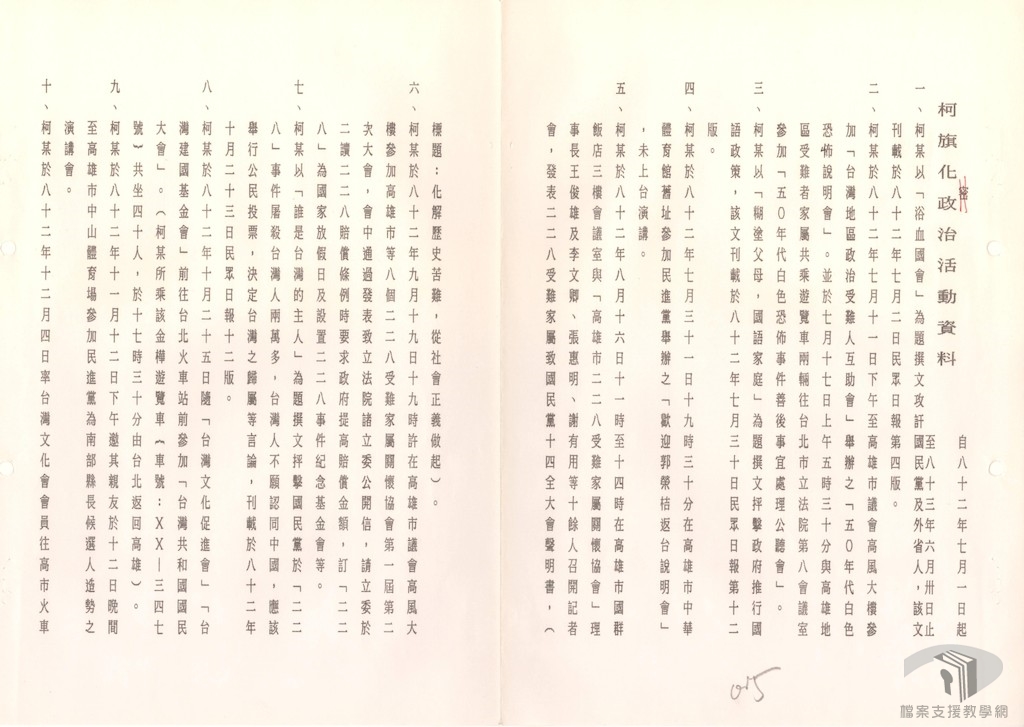 密
柯旗化政治活動資料
自八十二年七月一日起
至八十三年六月卅日止
一、柯某以「浴血國會」為題撰文攻訐國民黨及外省人，該文
刊載於八十二年七月二日民眾日報第四版。
二、柯某於八十二年七月十一日下午至高雄市議會高風大樓參
加「台灣地區政治受難人互助會」舉辦之「五０年代白色
恐怖說明會」。並於七月十七日上午五時三十分與高雄地
區受難者家屬共乘遊覽車兩輛往台北市立法院第八會議室
參加「五０年代白色恐怖事件善後事宜處理公聽會」。
三、柯某以「糊塗父母，國語家庭」為題撰文抨擊政府推行國
語政策，該文刊載於八十二年七月三十日民眾日報第十二
版。
四、柯某於八十二年七月三十一日十九時三十分在高雄市中華
體育館舊址參加民進黨舉辦之「歡迎郭榮桔返台說明會」
，未上台演講。
五、柯某於八十二年八月十六日十一時至十四時在高雄市國群
飯店三樓會議室與「高雄市二二八受難家屬關懷協會」理
事長王俊雄及李文卿、張惠明、謝有用等十餘人召開記者
會，發表二二八受難家屬致國民黨十四全大會聲明書，（
標題：化解歷史苦難，從社會正義做起）。
六、柯某於八十二年九月十九日十九時許在高雄市議會高風大
樓參加高雄市等八個二二八受難家屬關懷協會第一屆第二
次大會，會中通過發表致立法院諸立委公開信，請立委於
二讀二二八賠償條例時要求政府提高賠償金額，訂「二二
八」為國家放假日及設置二二八事件紀念基金會等。
七、柯某以「誰是台灣的主人」為題撰文抨擊國民黨於「二二
八」事件屠殺台灣人兩萬多，台灣人不願認同中國，應該
舉行公民投票，決定台灣之歸屬等言論，刊載於八十二年
十月二十三日民眾日報十二版。
八、柯某於八十二年十月二十五日隨「台灣文化促進會」「台
灣建國基金會」前往台北火車站前參加「台灣共和國國民
大會」。（柯某所乘該金樺遊覽車（車號：ＸＸ—三四七
號）共坐四十人，於十七時三十分由台北返回高雄）。
九、柯某於八十二年十一月十二日下午邀其親友於十二日晚間
至高雄市中山體育場參加民進黨為南部縣長候選人造勢之
演講會。
十、柯某於八十二年十二月四日率台灣文化會會員往高市火車
015
檔案支援教學網